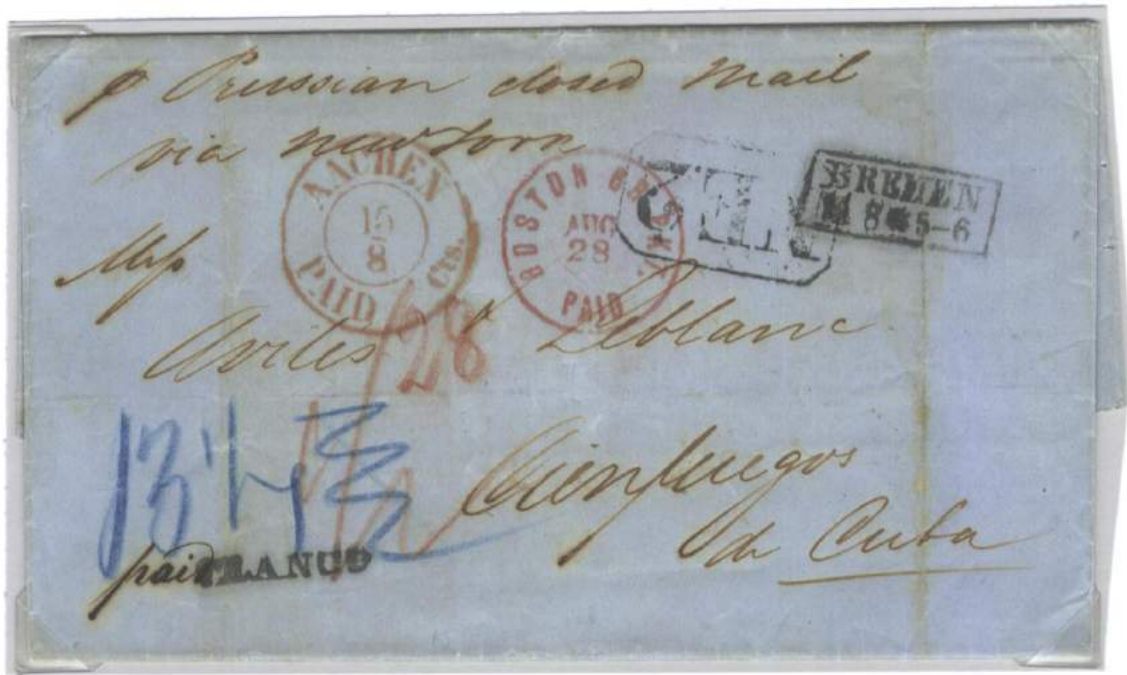 p Prussian closed Mail
via new York
AACHEN
15
8
PAID Cts.
BOSTON BR. PK.
AUG
28
PAID
BREMEN
8 * 5-6
Mess
Aviles & Leblanc
28
Cienfuegos
de Cuba
paid
FRANCO